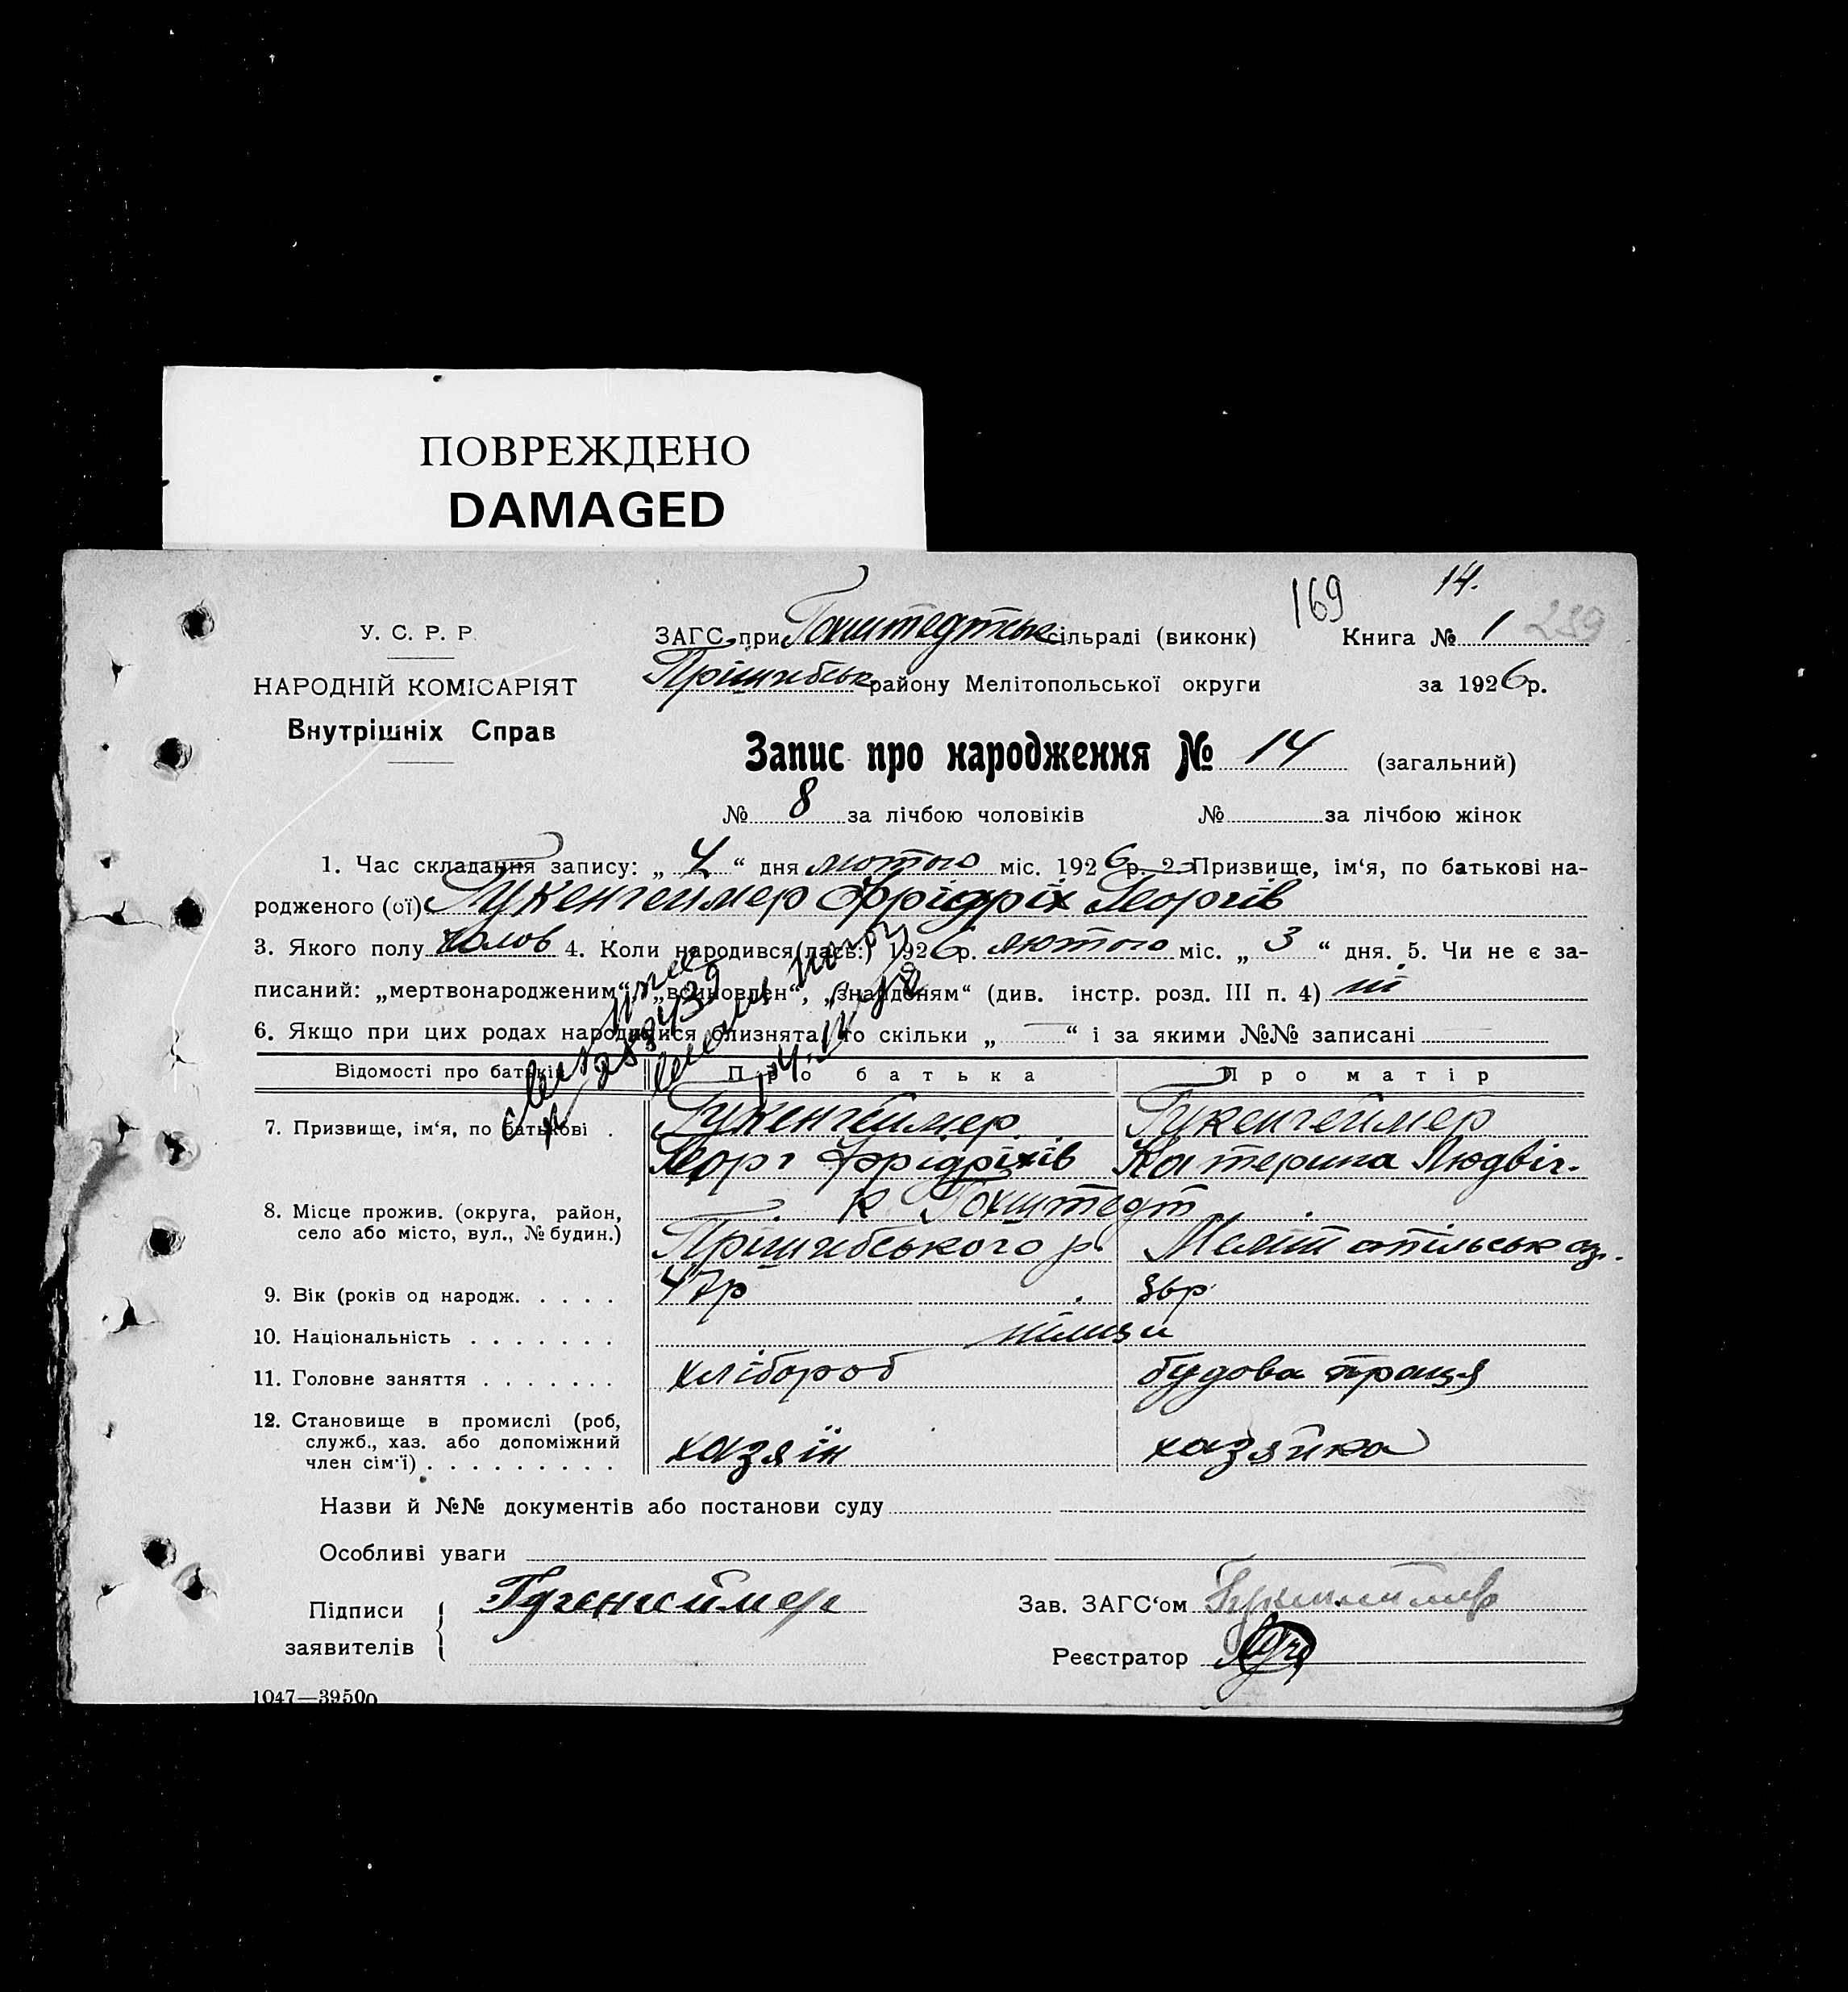 ПОВРЕЖДЕНО
DAMAGED
169
14.
У. С. Р. Р.
ЗАГС при Гохштедтськ сільраді (виконк)
Книга № 1
239
НАРОДНІЙ КОМІСАРІЯТ
Прішибськ району Мелітопольської округи
за 1926р.
Внутрішніх Справ
Запис про народження № 14 (загальний)
№ 8 за лічбою чоловіків № за лічбою жінок
1. Час складання запису: „ 4 “ дня лютого міс. 1926 р. 2. Призвище, ім‘я, по батькові на-
родженого (ої) Гукенгеймер Фрідріх Георгів
3. Якого полу чолов 4. Коли народився(лась:) 1926р. лютого міс. „ 3 “ дня. 5. Чи не є за-
писаний: „мертвонародженим“, „всиновлен“, „знайденям“ (див. інстр. розд. III п. 4) ні
6. Якщо при цих родах народилися близнята, то скільки „ “ і за якими №№ записані
Відомості про батьків
Про батька
Про матір
7. Призвище, ім‘я, по батькові .
Гукенгеймер
Гукенгеймер
Георг Фрідріхів
Катерина Людвіг.
8. Місце прожив. (округа, район,
село або місто, вул., № будин.)
к Гохштедт
Прішибського р.
9. Вік (років од народж. . . . .
47р
36р
10. Національність . . . . . . .
німці
11. Головне заняття . . . . . . .
хлібороб
праця
12. Становище в промислі (роб,
служб., хаз. або допоміжний
член сім‘ї) . . . . . . . . .
хазяїн
хазяйка
Назви й №№ документів або постанови суду
Особливі уваги
Підписи
заявителів
Гукенгеймер
Зав. ЗАГС‘ом
Реєстратор
1047—39500